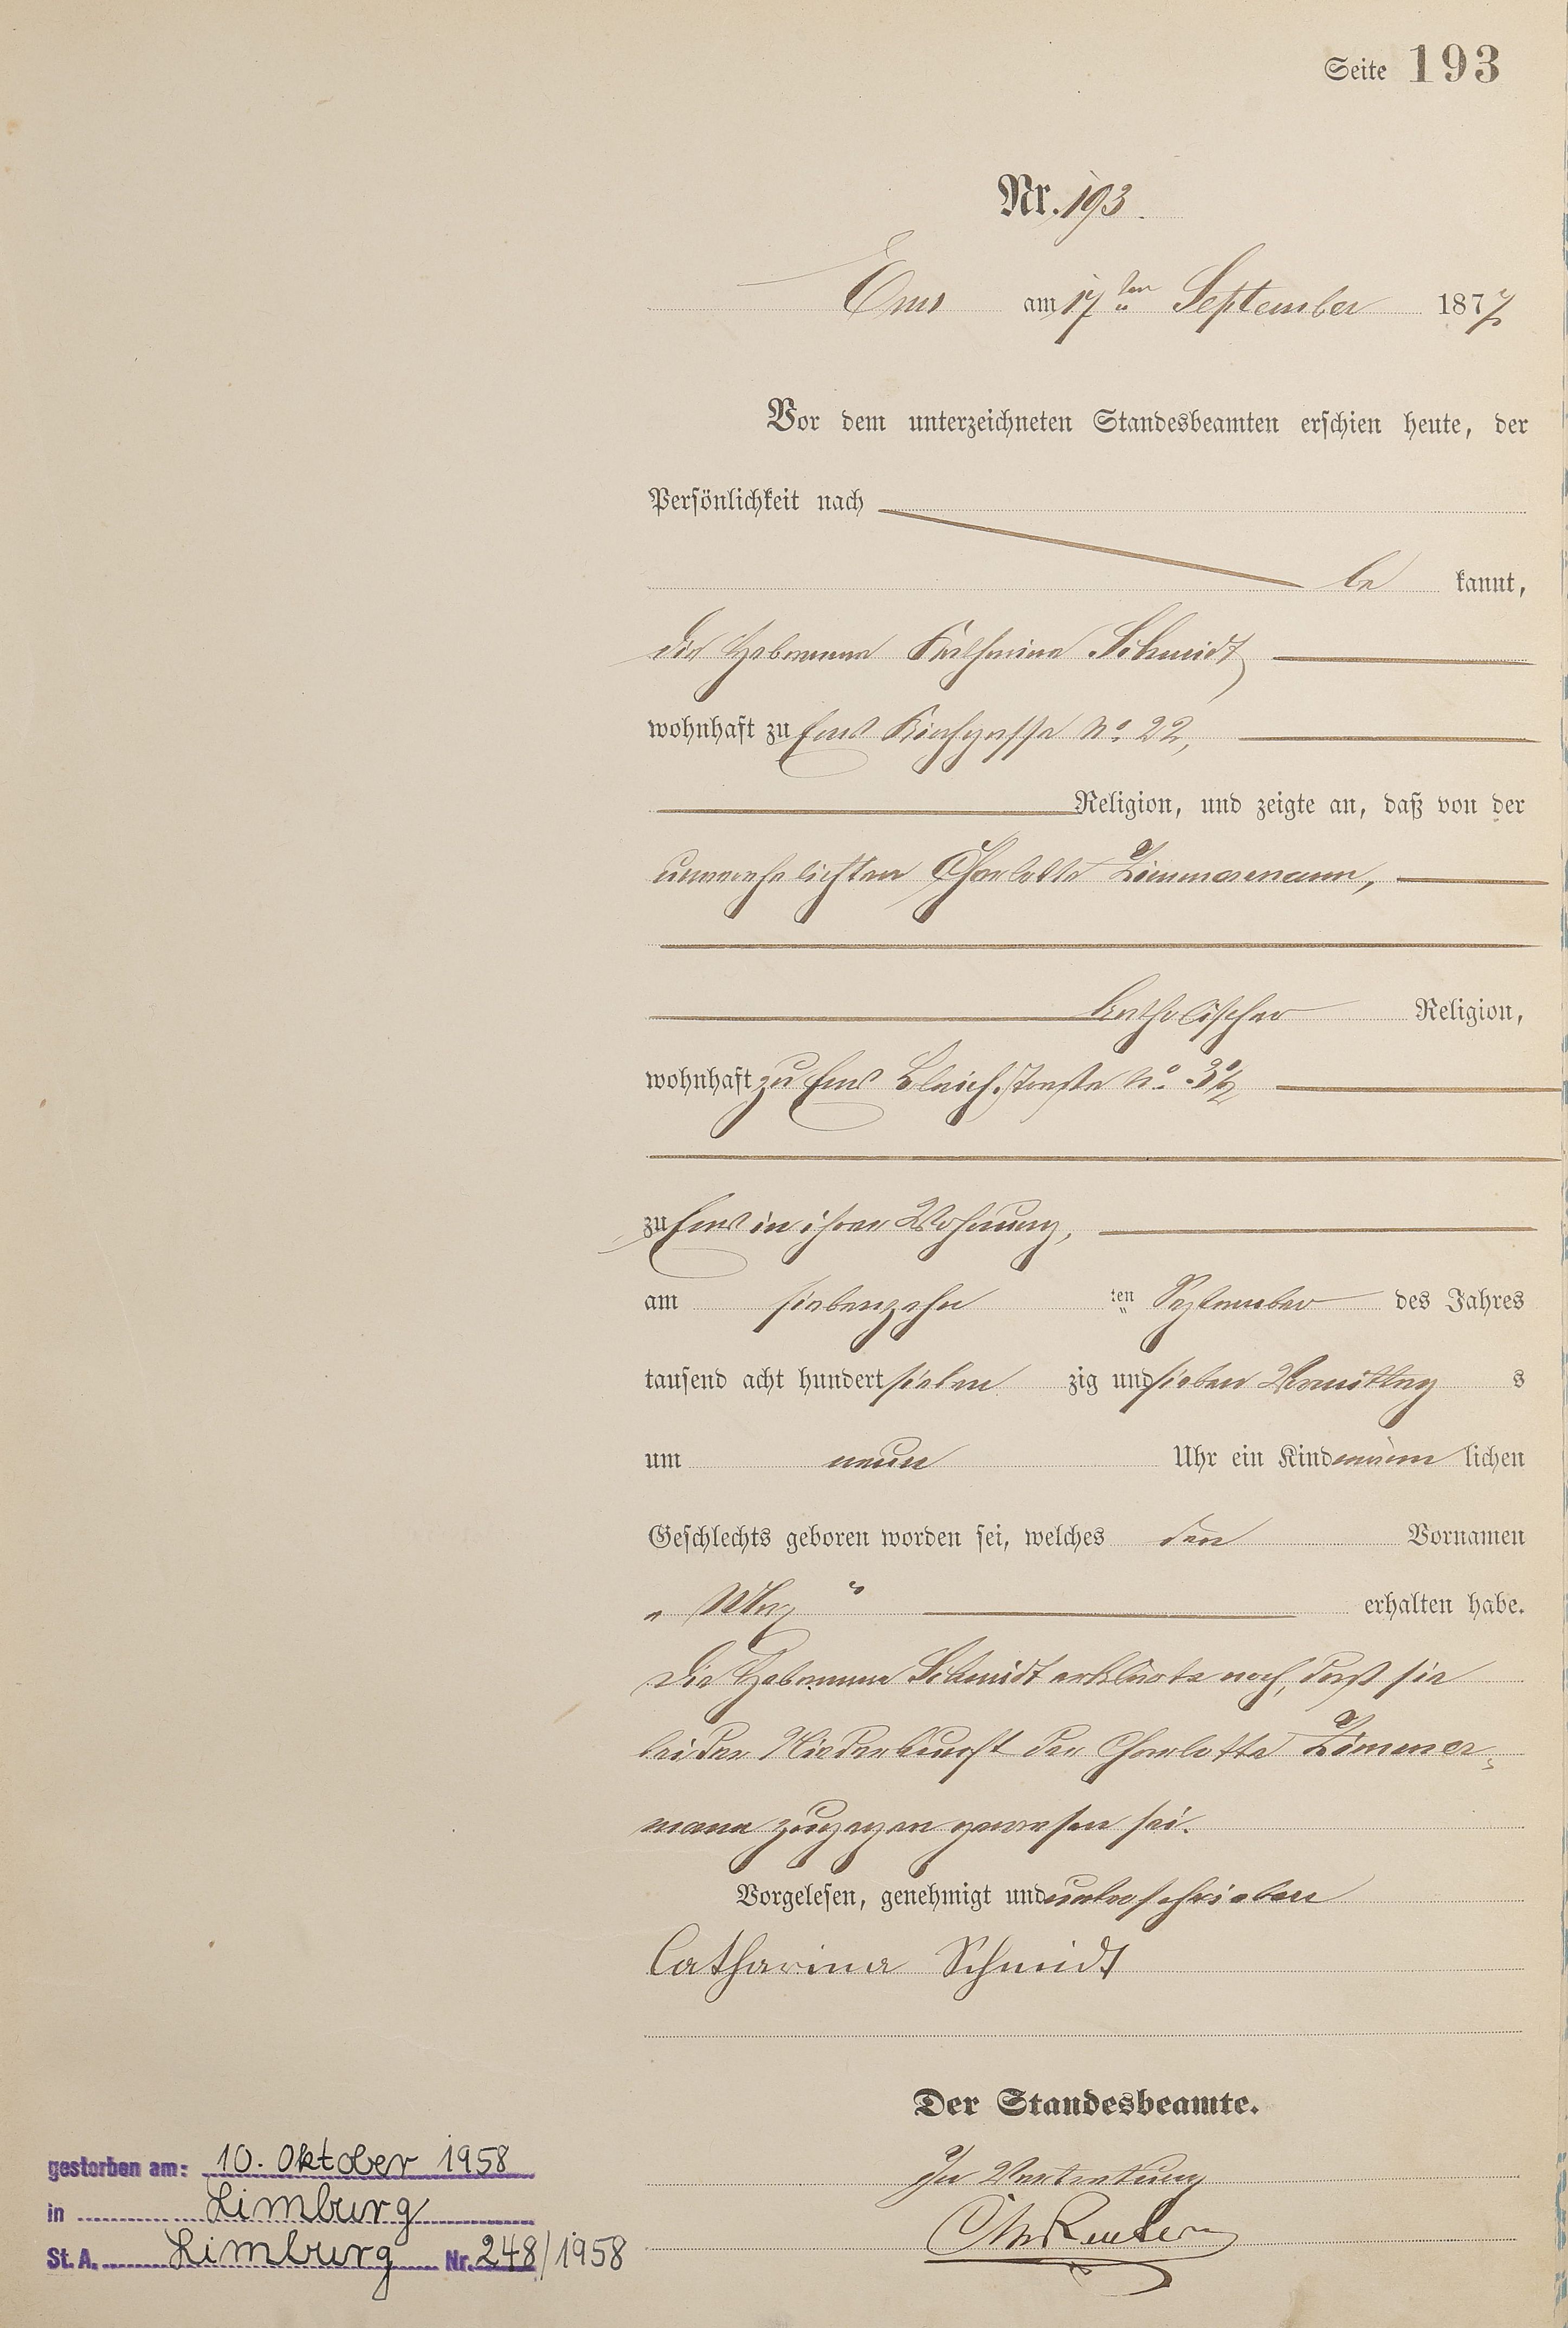 Seite 193
Nr. 193.
Ems am 17ten September 1877
Vor dem unterzeichneten Standesbeamten erschien heute, der
Persönlichkeit nach
be kannt,
die Hebamme Katharina Schmidt
wohnhaft zu Ems Kirchgasse No. 22,
Religion, und zeigte an, daß von der
unverehelichten Charlotte Zimmermann,
katholischer Religion,
wohnhaft zu Ems Bleichstraße No.
zu Ems in ihrer Wohnung,
am siebenzehn ten September des Jahres
tausend acht hundert sieben zig und sieben Vormittag s
um neun Uhr ein Kind männ lichen
Geschlechts geboren worden sei, welches den Vornamen
„ Max “ erhalten habe.
Die Hebamme Schmidt erklärte noch, daß sie
bei der Niederkunft der Charlotte Zimmer-
mann zugegen gewesen sei.
Vorgelesen, genehmigt und unterschrieben
Catharina Schmidt
Der Standesbeamte.
In Vertretung
gestorben am: 10. Oktober 1958
in Limburg
St. A. Limburg Nr. 248/1958